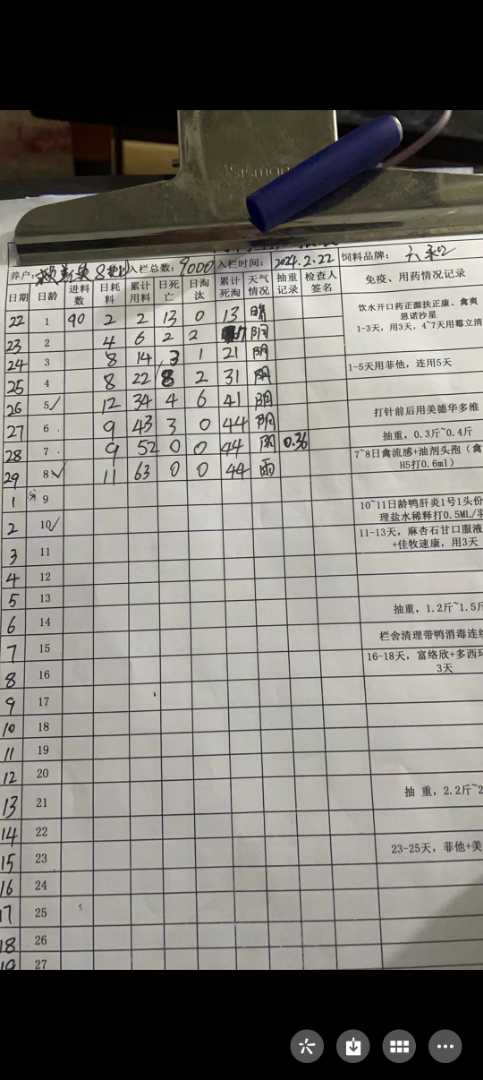 养户: 入栏总数: 9000 入栏时间: 2024.2.22 饲料品牌: 六和
日期 日龄 进料数 日耗料 累计用料 日死亡 日淘汰 累计死淘 天气情况 抽重记录 检查人签名 免疫、用药情况记录
22 1 90 2 2 13 0 13 晴 饮水开口药正源扶正康、禽爽
恩诺沙星
1-3天，用3天，4~7天用霉立清
23 2 4 6 2 2 17 阴
24 3 8 14 3 1 21 阴
25 4 8 22 8 2 31 阴 1-5天用菲他，连用5天
26 5 12 34 4 6 41 阴
27 6 9 43 3 0 44 阴 打针前后用美德华多维
28 7 9 52 0 0 44 阴 0.36 抽重，0.3斤~0.4斤
29 8 11 63 0 0 44 雨 7~8日禽流感+油剂头孢（禽
H5打0.6ml）
1 9
2 10 10~11日龄鸭肝炎1号1头份
理盐水稀释打0.5ML/羽
3 11 11-13天，麻杏石甘口服液
+佳牧速康，用3天
4 12
5 13
6 14 抽重，1.2斤~1.5斤
7 15 栏舍清理带鸭消毒连续
8 16 16-18天，富络欣+多西环
3天
9 17
10 18
11 19
12 20
13 21 抽 重，2.2斤~2
14 22
15 23 23-25天，菲他+美
16 24
17 25
18 26
19 27